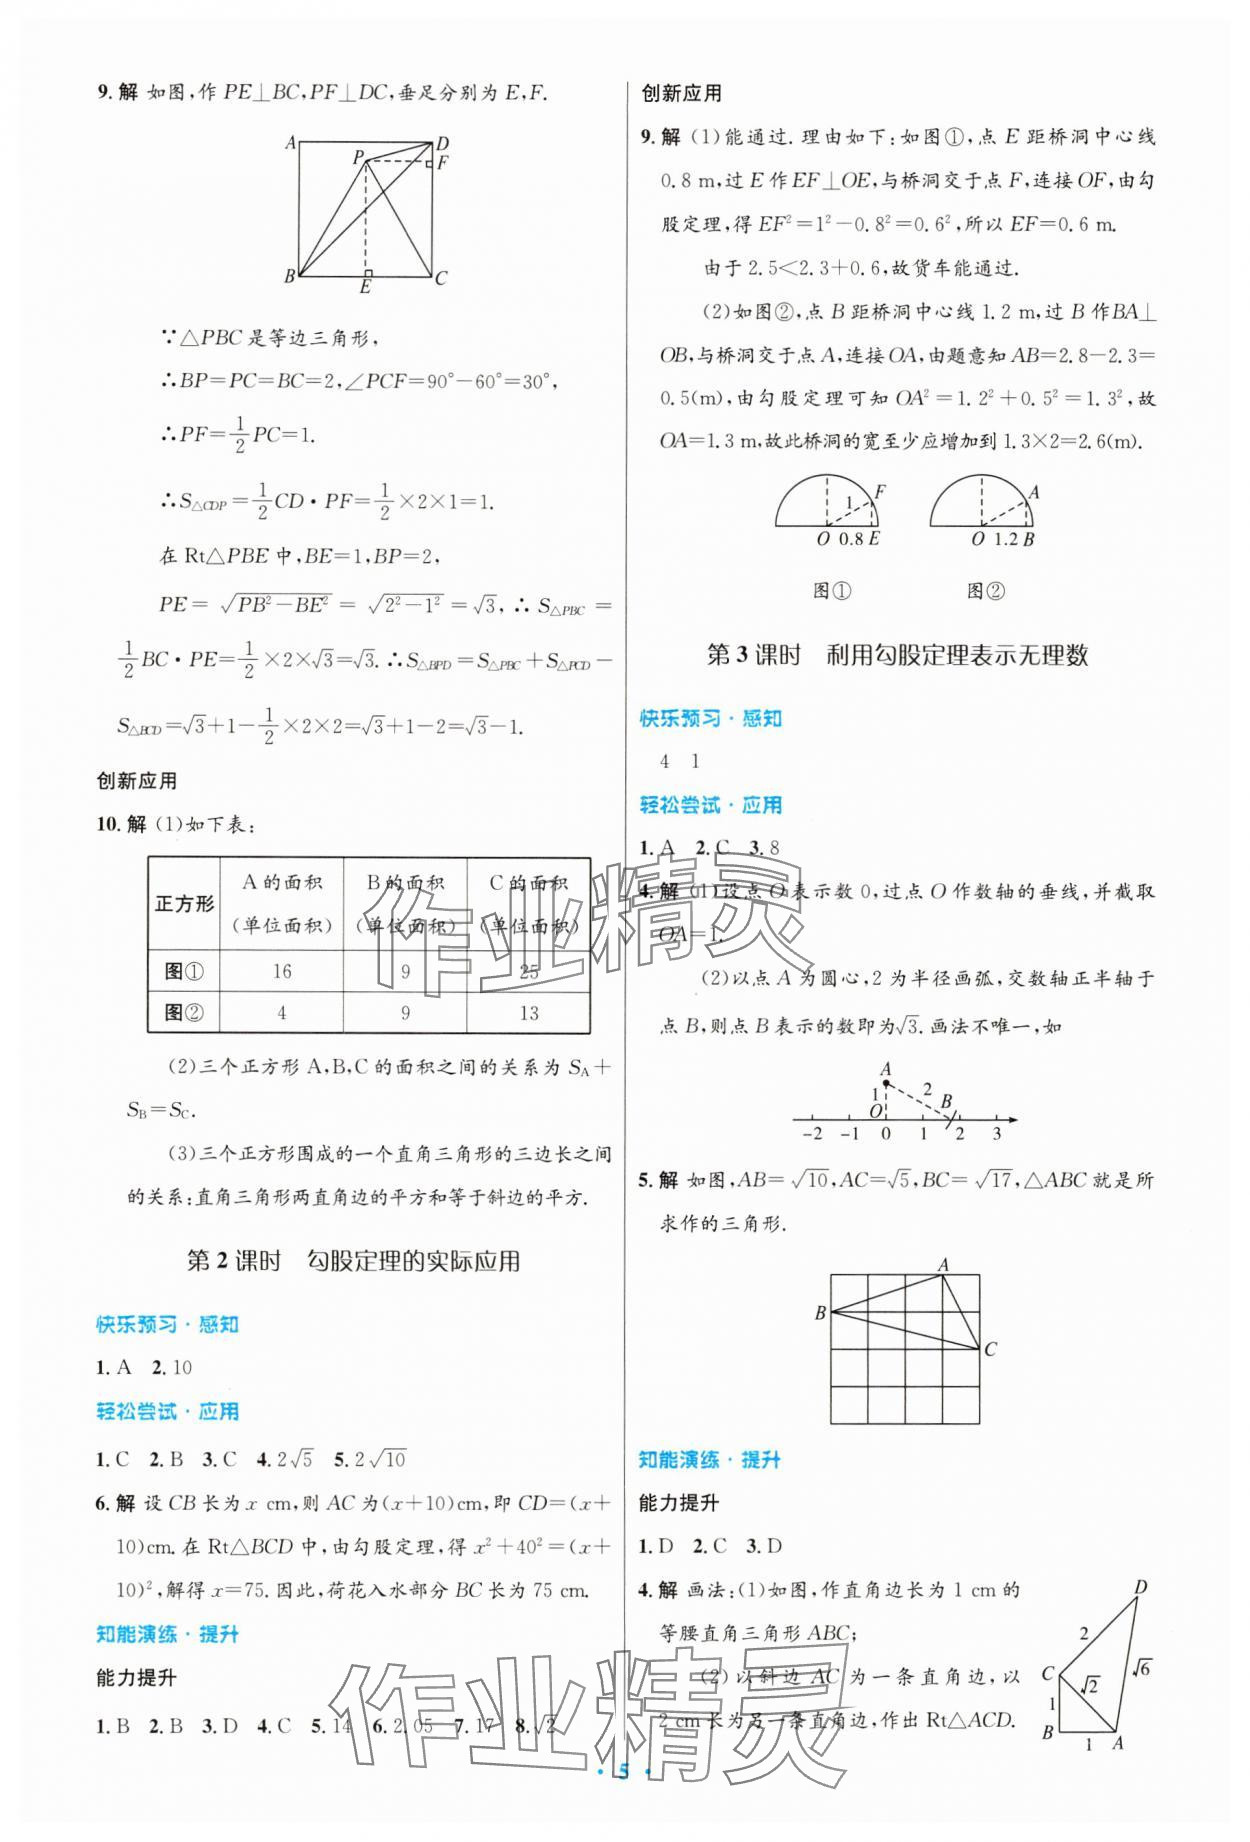 9. 解 如图,作 PE⊥BC,PF⊥DC,垂足分别为 E,F.
A D P F B E C
∵△PBC 是等边三角形,
∴BP=PC=BC=2,∠PCF=90°-60°=30°,
∴PF=1/2PC=1.
∴S△CDP=1/2CD·PF=1/2×2×1=1.
在 Rt△PBE 中,BE=1,BP=2,
PE=√(PB²-BE²)=√(2²-1²)=√3,∴S△PBC=
1/2BC·PE=1/2×2×√3=√3.∴S△BPD=S△PBC+S△PCD-
S△BCD=√3+1-1/2×2×2=√3+1-2=√3-1.
创新应用
10. 解 (1)如下表:
正方形 A 的面积(单位面积) B的面积(单位面积) C的面积(单位面积)
图① 16 9 25
图② 4 9 13
(2)三个正方形 A,B,C 的面积之间的关系为 SA+
SB=SC.
(3)三个正方形围成的一个直角三角形的三边长之间
的关系:直角三角形两直角边的平方和等于斜边的平方.
第 2 课时 勾股定理的实际应用
快乐预习·感知
1. A 2. 10
轻松尝试·应用
1. C 2. B 3. C 4. 2√5 5. 2√10
6. 解 设 CB 长为 x cm,则 AC 为(x+10)cm,即 CD=(x+
10)cm.在 Rt△BCD 中,由勾股定理,得 x²+40²=(x+
10)²,解得 x=75.因此,荷花入水部分 BC 长为 75 cm.
知能演练·提升
能力提升
1. B 2. B 3. D 4. C 5. 14 6. 2.05 7. 17 8. √2
创新应用
9. 解 (1)能通过.理由如下:如图①,点 E 距桥洞中心线
0.8 m,过 E 作 EF⊥OE,与桥洞交于点 F,连接 OF,由勾
股定理,得 EF²=1²-0.8²=0.6²,所以 EF=0.6 m.
由于 2.5<2.3+0.6,故货车能通过.
(2)如图②,点 B 距桥洞中心线 1.2 m,过 B 作BA⊥
OB,与桥洞交于点 A,连接 OA,由题意知 AB=2.8-2.3=
0.5(m),由勾股定理可知 OA²=1.2²+0.5²=1.3²,故
OA=1.3 m,故此桥洞的宽至少应增加到 1.3×2=2.6(m).
1 F O 0.8 E
A O 1.2 B
图① 图②
第 3 课时 利用勾股定理表示无理数
快乐预习·感知
4 1
轻松尝试·应用
1. A 2. C 3. 8
4. 解 (1)设点 O 表示数 0,过点 O 作数轴的垂线,并截取
OA=1.
(2)以点 A 为圆心,2 为半径画弧,交数轴正半轴于
点 B,则点 B 表示的数即为√3.画法不唯一,如
A 1 2 B O
-2 -1 0 1 2 3
5. 解 如图,AB=√10,AC=√5,BC=√17,△ABC 就是所
求作的三角形.
A B C
知能演练·提升
能力提升
1. D 2. C 3. D
4. 解 画法:(1)如图,作直角边长为 1 cm 的
等腰直角三角形 ABC;
(2)以斜边 AC 为一条直角边,以
2 cm长为另一条直角边,作出 Rt△ACD.
D 2 C √2 √6 1 B 1 A
作业精灵
作业精灵
· 5 ·